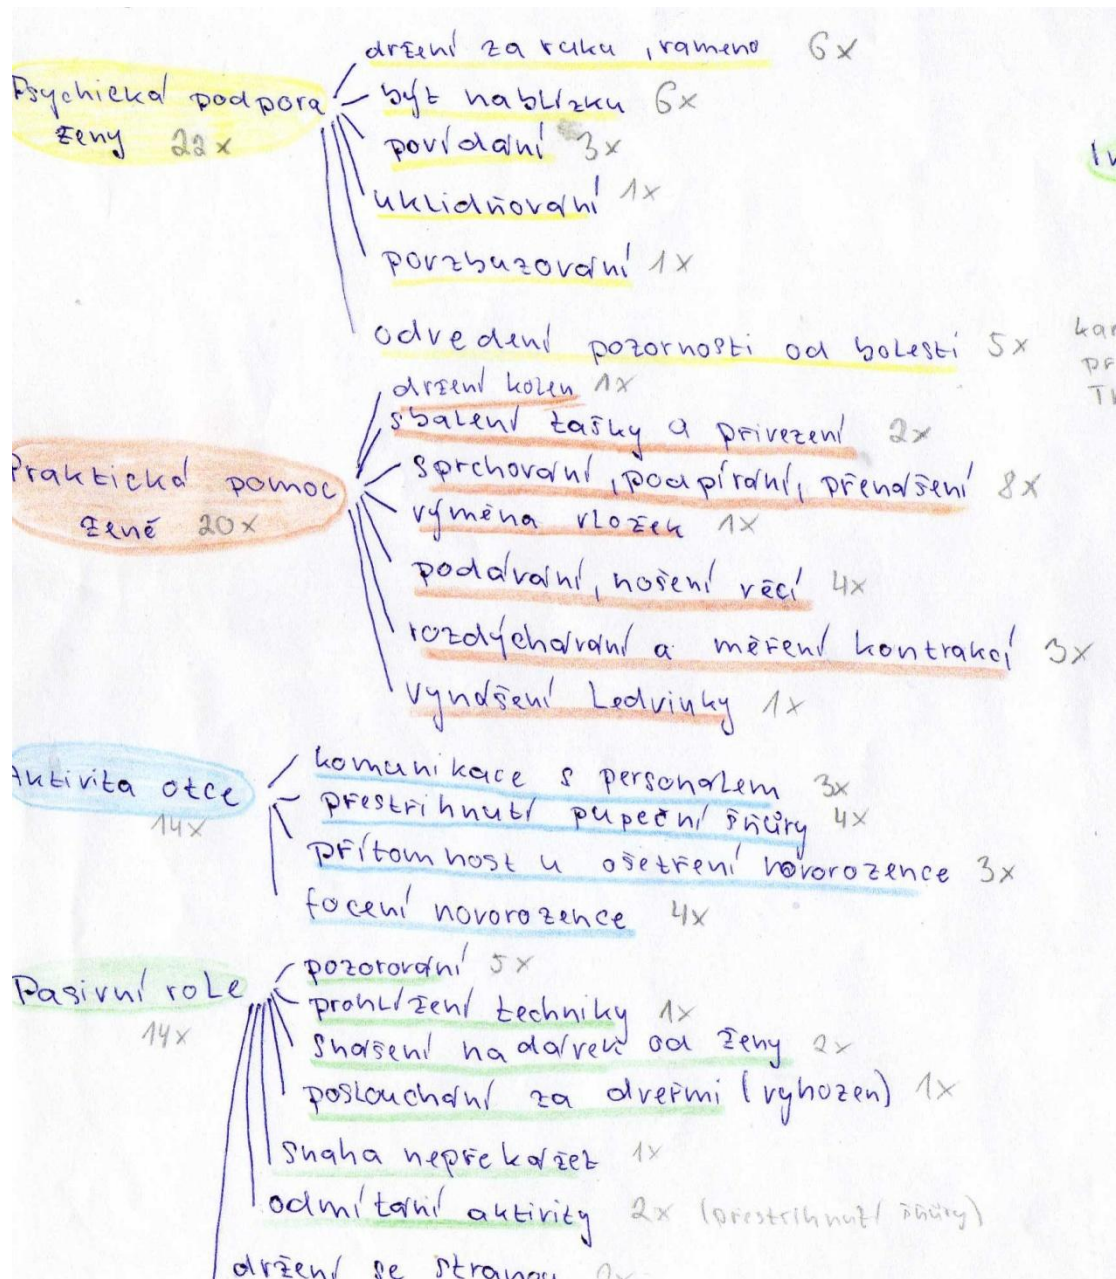 držení za ruku, rameno 6x
Psychická podpora
ženy 22x
být nablízku 6x
povídání 3x
uklidňování 1x
povzbuzování 1x
odvedení pozornosti od bolesti 5x
držení kolen 1x
sbalení tašky a přivezení 2x
Praktická pomoc
ženě 20x
sprchování, podpírání, přenášení 8x
výměna vložek 1x
podávání, nošení věcí 4x
rozdýchávání a měření kontrakcí 3x
vynášení ledvinky 1x
Aktivita otce
14x
komunikace s personálem 3x
přestřihnutí pupeční šňůry 4x
přítomnost u ošetření novorozence 3x
focení novorozence 4x
Pasivní role
14x
pozorování 5x
prohlížení techniky 1x
snášení nadávek od ženy 2x
poslouchání za dveřmi (vyhozen) 1x
snaha nepřekážet 1x
odmítání aktivity 2x (přestřihnutí šňůry)
držení se stranou